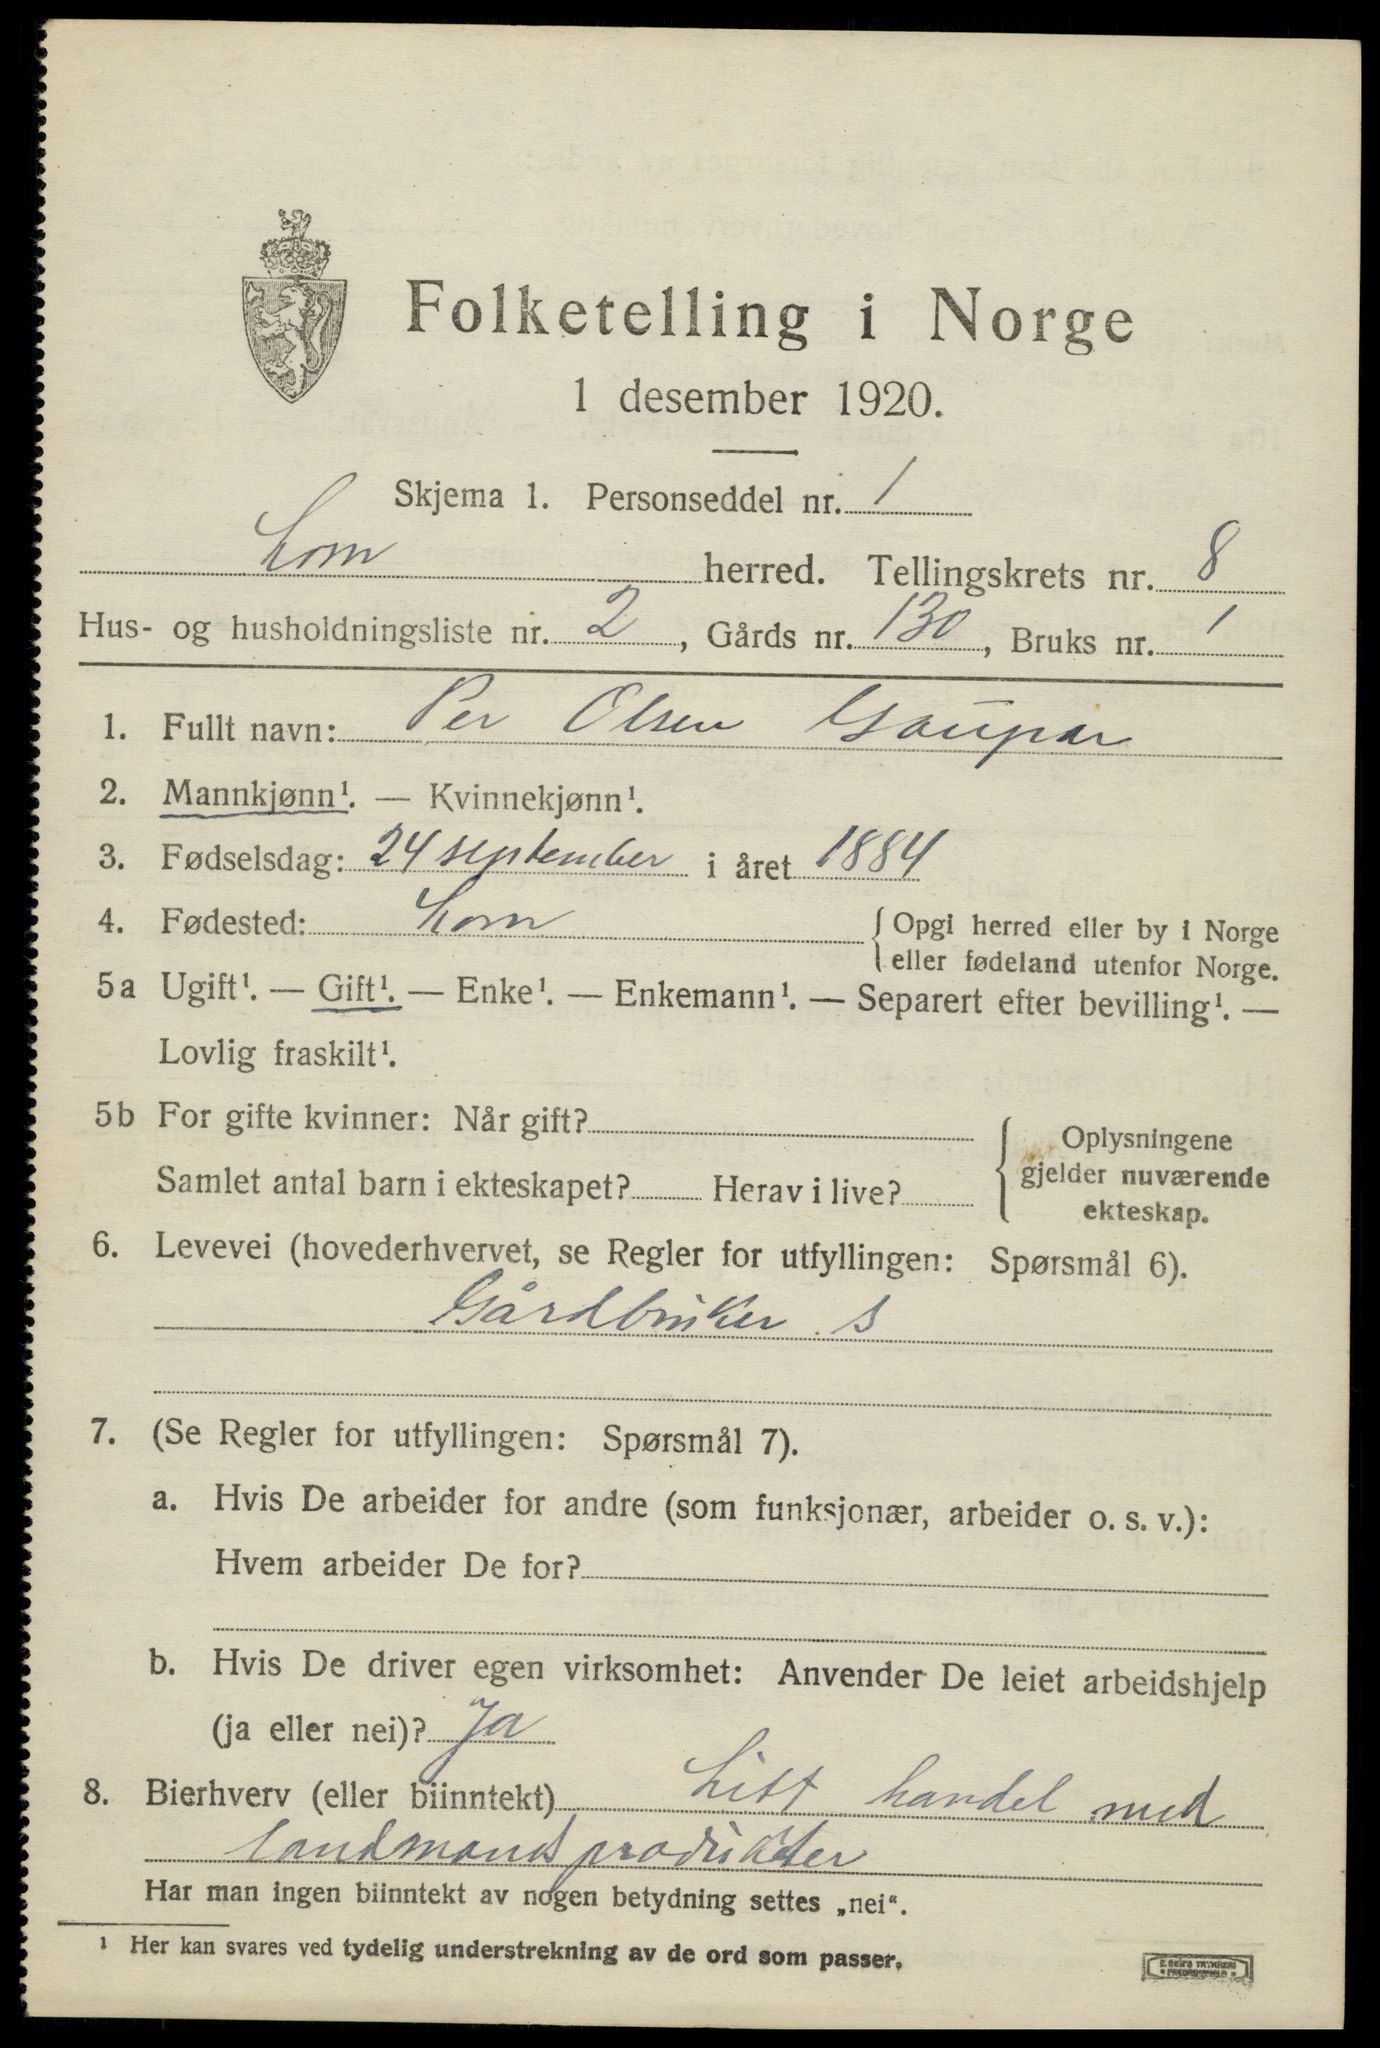 Folketelling i Norge
1 desember 1920.
Skjema 1. Personseddel nr. 1
Lom herred. Tellingskrets nr. 8
Hus- og husholdningsliste nr. 2, Gårds nr. 130, Bruks nr. 1
1. Fullt navn: Per Olsen Gaupar
2. Mannkjønn¹. — Kvinnekjønn¹.
3. Fødselsdag: 24 september i året 1884
4. Fødested: Lom {Opgi herred eller by i Norge
eller fødeland utenfor Norge.
5a Ugift¹. — Gift¹. — Enke¹. — Enkemann¹. — Separert efter bevilling¹. —
Lovlig fraskilt¹.
5b For gifte kvinner: Når gift?
Samlet antal barn i ekteskapet? Herav i live?
{Oplysningene
gjelder nuværende
ekteskap.
6. Levevei (hovederhvervet, se Regler for utfyllingen: Spørsmål 6).
Gårdbruker s
7. (Se Regler for utfyllingen: Spørsmål 7).
a. Hvis De arbeider for andre (som funksjonær, arbeider o. s. v.):
Hvem arbeider De for?
b. Hvis De driver egen virksomhet: Anvender De leiet arbeidshjelp
(ja eller nei)? Ja
8. Bierhverv (eller biinntekt) Litt handel med
landmandsprodukter
Har man ingen biinntekt av nogen betydning settes „nei“.
¹ Her kan svares ved tydelig understrekning av de ord som passer.